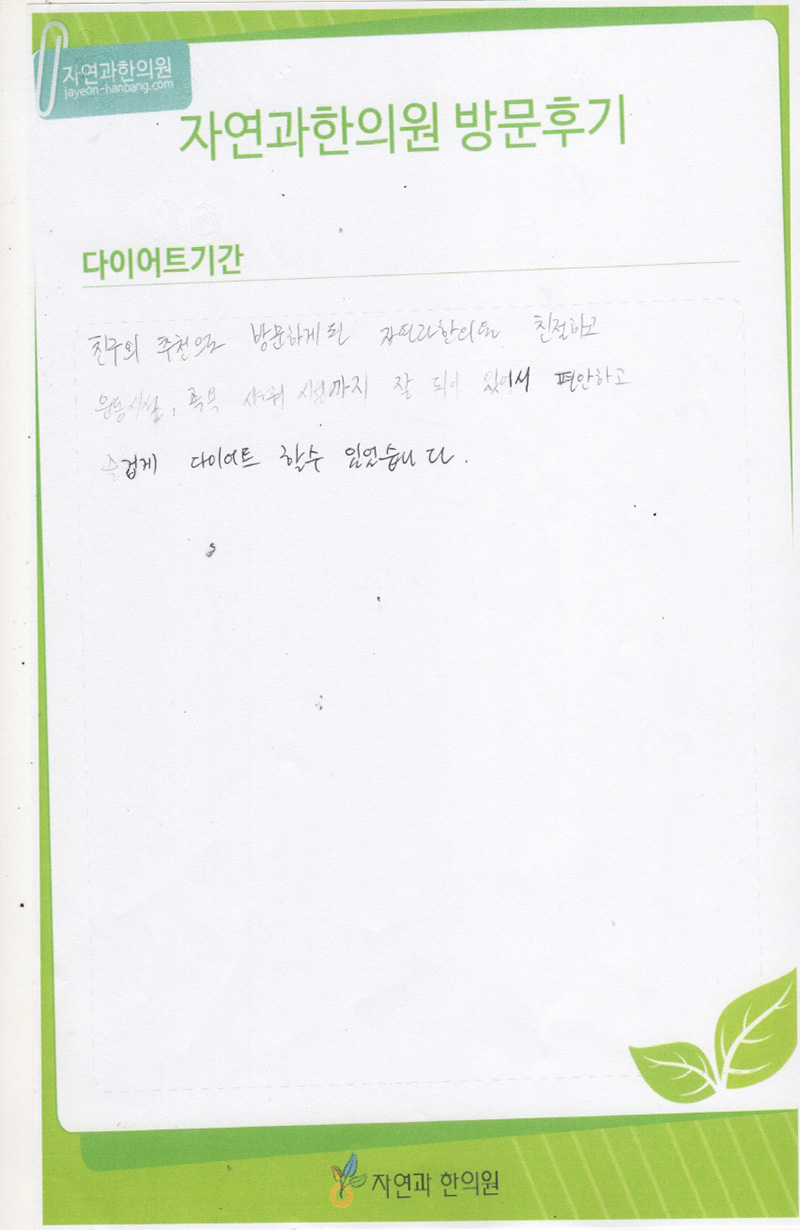 자연과한의원
jayeon-hanbang.com
자연과한의원 방문후기
다이어트기간
친구의 추천으로 방문하게 된 자연과한의원 친절하고
운동시설, 족욕 샤워 시설까지 잘 되어 있어서 편안하고
즐겁게 다이어트 할수 있었습니다.
자연과 한의원